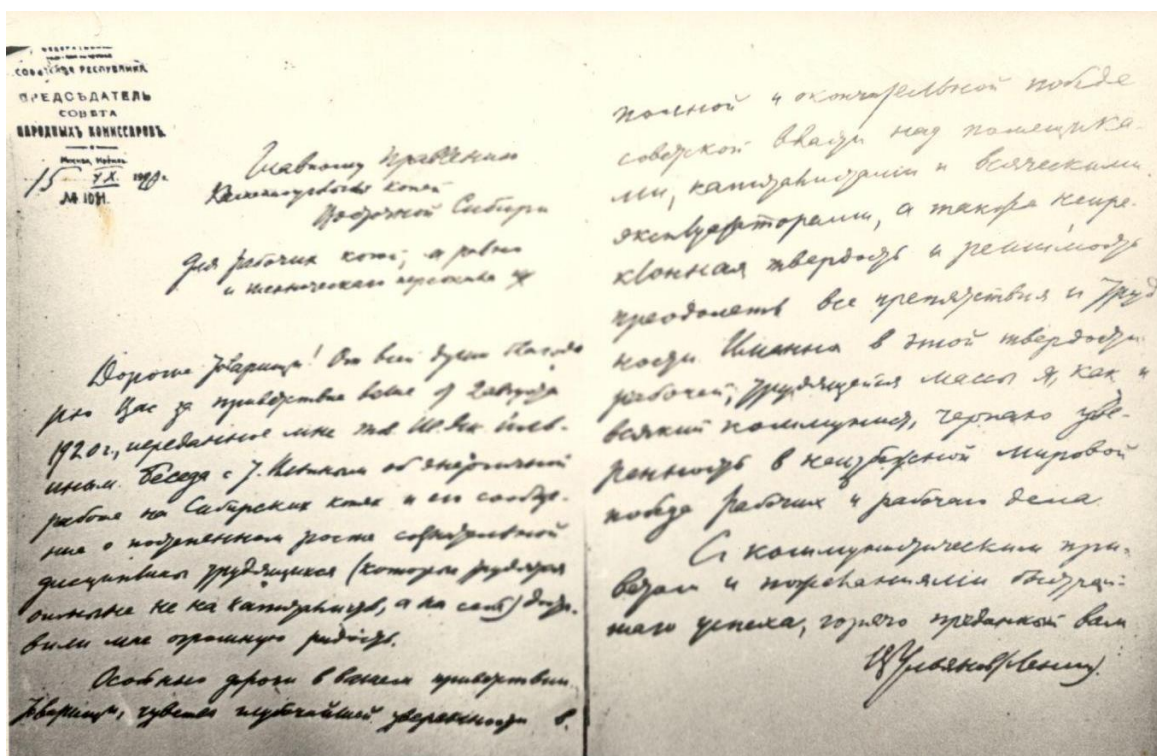 СОВЕТСКАЯ РЕСПУБЛИКА
ПРЕДСѢДАТЕЛЬ
СОВѢТА
НАРОДНЫХЪ КОМИССАРОВЪ.
Москва, Кремль
15 / X 1920 г.
№ 1031.
Главному Правлению
Каменноугольных копей
Восточной Сибири
Для рабочих копей, а равно
и технического персонала их
Дорогие товарищи! От всей души благода
рю Вас за приветствие ваше от 2 августа
1920 г., переданное мне тов.
Беседа с т. об энергичной
работе на Сибирских копях и его сообще-
ние о постепенном росте сознательной
дисциплины трудящихся (которые трудятся
отныне не на капиталистов, а на себя) доста-
вили мне огромную радость.
Особенно дороги в вашем приветствии,
товарищи, чувства глубочайшей уверенности в
полной и окончательной победе
советской власти над помещика-
ми, капиталистами и всяческими
эксплуататорами, а также непре-
клонная твердость и решимость
преодолеть все препятствия и труд
ности. Именно в этой твердости
рабочей, трудящейся массы я, как и
всякий коммунист, черпаю уве-
ренность в неизбежной мировой
победе рабочих и рабочего дела.
С коммунистическим при-
ветом и пожеланиями быстрей-
шего успеха, горячо преданный вам
В. Ульянов (Ленин)